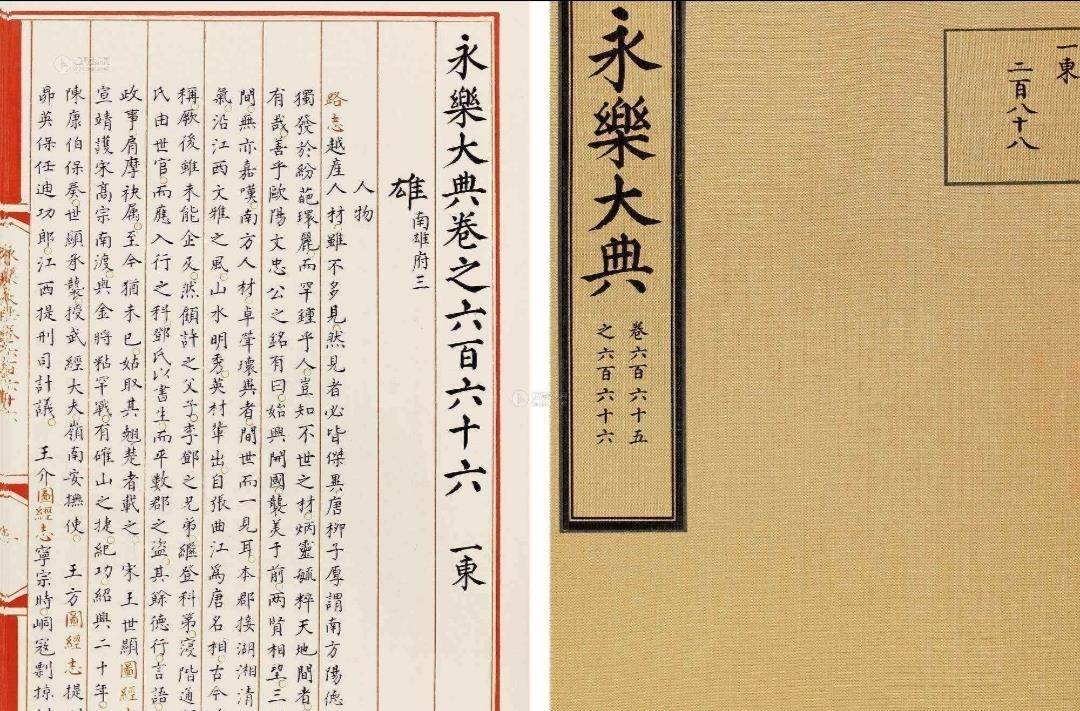 永樂大典卷之六百六十六 一東
雄 南雄府三
人物
路志越産人材雖不多見然見者必皆傑異唐柳子厚謂南方陽德
獨發於紛葩環麗而罕鍾乎人豈知不世之材炳靈毓粹天地間者
有哉善乎歐陽文忠公之銘有曰始興開國襲美于前兩賢相望三
間無亦嘉嘆南方人材卓犖瓌異者間世而一見耳本郡接湖湘清
氣沿江西文雅之風山水明秀英材輩出自張曲江爲唐名相古今
稱厥後雖未能企及然顧許之父子李鄧之兄弟繼登科第寖階通
氏由世官而應入行之科鄧氏以書生而平數郡之盜其餘德行言語
政事肩摩袂属至今猶未已姑取其翹楚者載之 宋王世顯圖經
宣靖護宋高宗南渡與金將粘罕戰有確山之捷紀功紹興二十年
陳康伯保奏世顯承襲授武經大夫嶺南安撫使 王方圖經志提
昴英保任迪功郎江西提刑司計議 王介圖經志寧宗時峒寇剽掠
永樂大典
卷六百六十五
之六百六十六
一東
二百八十八